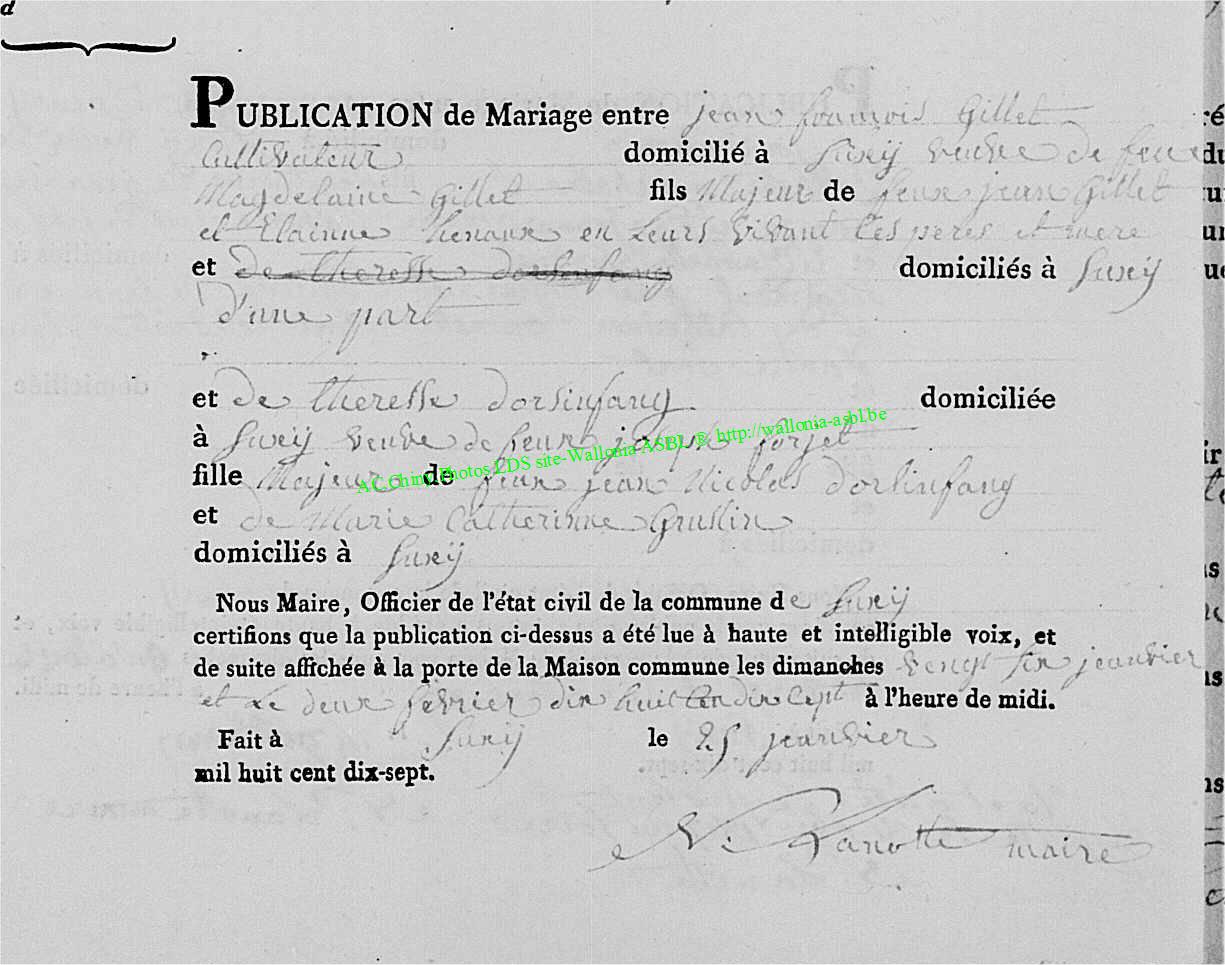 d
PUBLICATION de Mariage entre jean fransois Gillet
Cultivateur domicilié à Suxÿ veuve de feue
Magdelaine Gillet fils Majeur de feux jean Gillet
et Elainne henaux en Leurs vivant Ces peres et mere
et de theresse dorlinfang domiciliés à Suxÿ
D'une part
et de theresse dorlinfang. domiciliée
à Suxÿ veuve de feux joseph forjet
fille Majeur de feux jean Nicolas dorlinfang
et de Marie Catherinne Gruslin
domiciliés à Suxÿ
Nous Maire, Officier de l'état civil de la commune de Suxÿ
certifions que la publication ci-dessus a été lue à haute et intelligible voix, et
de suite affichée à la porte de la Maison commune les dimanches vengt six jeanvier
et Le deux fevrier dix huit Cen dix Cept à l'heure de midi.
Fait à Suxÿ le 25 jeanvier
mil huit cent dix-sept.
maire
AC.Chiny Photos LDS site-Wallonia ASBL ® http://wallonia-asbl.be